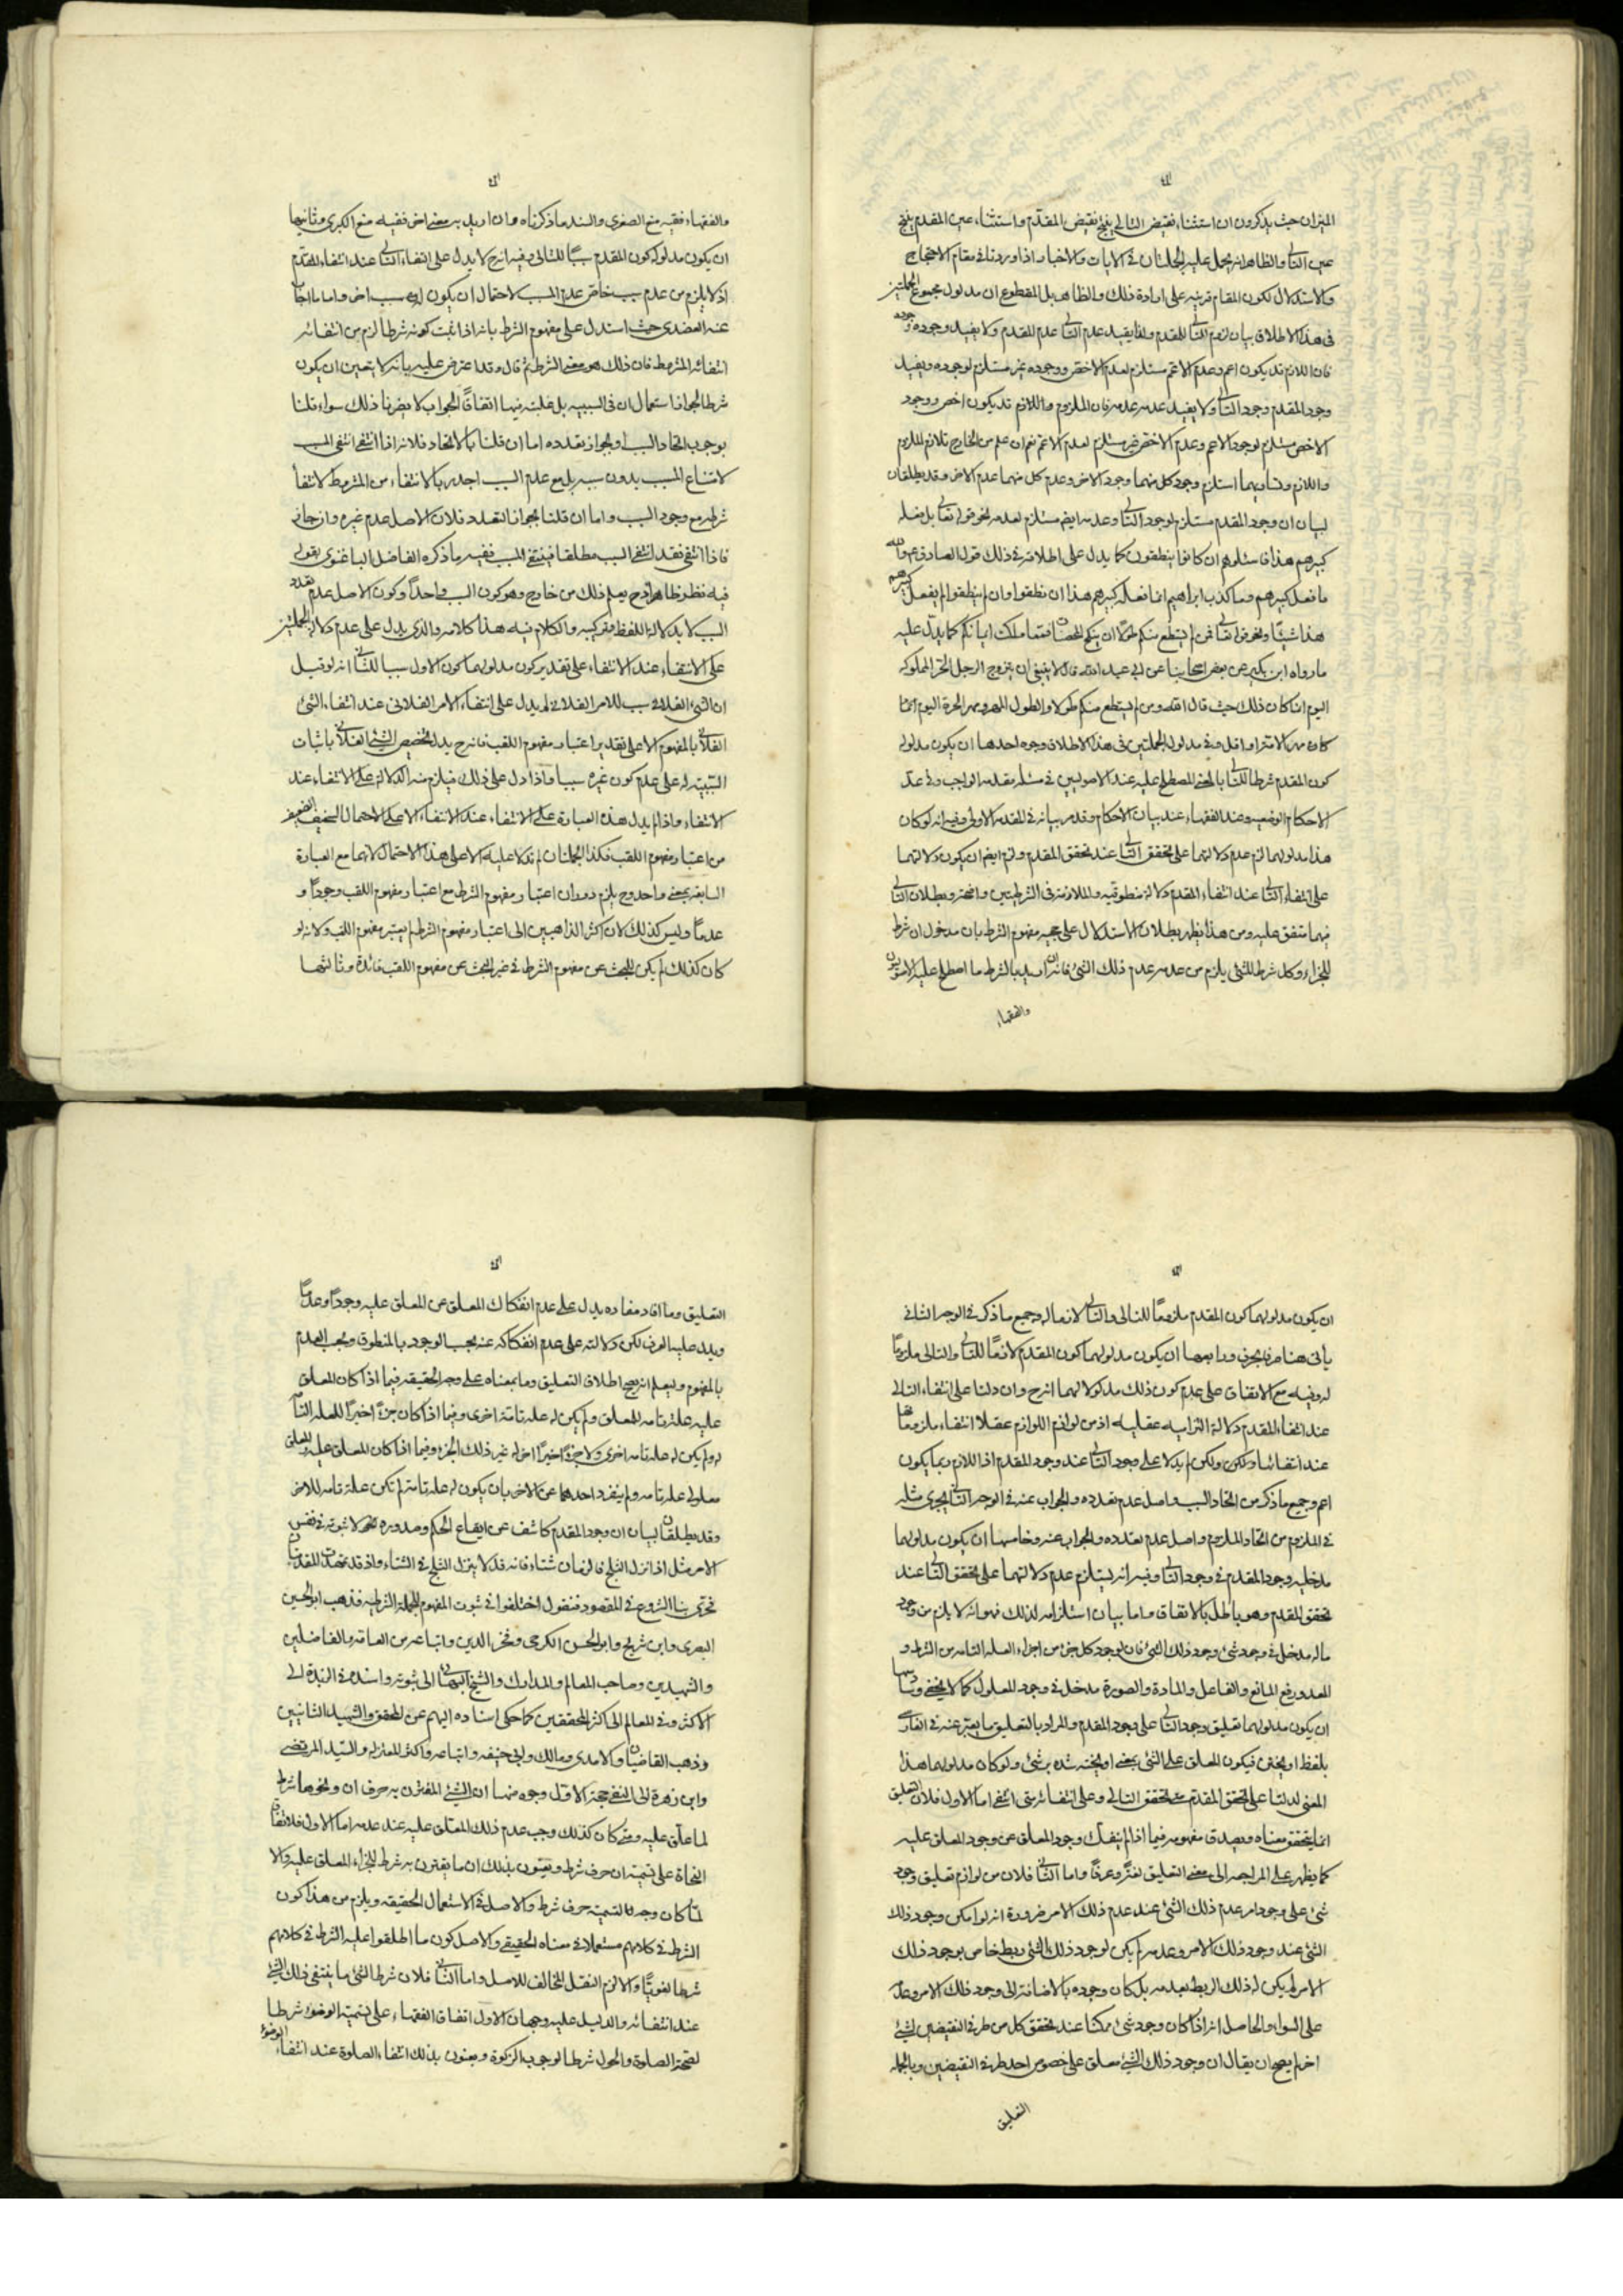 الميزان حيث يذكرون ان استثناء نقيض التالى ينتج نقيض المقدّم واستثناء عين المقدم ينتج
عين التالى والظاهر انه يحمل عليه الجملتان فى الايات والاخبار اذا وردتا فى مقام الاحتجاج
والاستدلال لكون المقام قرينة على ارادة ذلك والظاهر بل المقطوع ان مدلول مجموع الجملتين
فى هذا الاطلاق بيان لزوم التالى للمقدم ولذا يفيد عدم التالى عدم المقدم ولا يفيد وجوده وجوده
فان اللازم قد يكون اعم وعدم الاعم مستلزم لعدم الاخص ووجوده غير مستلزم لوجوده ويفيد
وجود المقدم وجود التالى ولا يفيد عدمه عدمه فان الملزوم واللازم قد يكون اخص ووجود
الاخص مستلزم لوجود الاعم وعدم الاخص غير مستلزم لعدم الاعم نعم ان علم من الخارج تلازم الملزوم
واللازم وتساويهما استلزم وجود كل منهما وجود الاخر وعدم كل منهما عدم الاخر وقد يطلقان
لبيان ان وجود المقدم مستلزم لوجود التالى وعدمه ايضا مستلزم لعدمه نحو قوله تعالى بل فعله
كبيرهم هذا فاسئلوهم ان كانوا ينطقون كما يدل على اطلاقه فى ذلك قول الصادق ع والله
ما فعل كبيرهم وما كذب ابراهيم انما فعله كبيرهم هذا ان نطقوا وان لم ينطقوا لم يفعل كبيرهم
هذا شيئا ونحو قوله تعالى فمن لم يستطع منكم طولا ان ينكح المحصنات فمما ملكت ايمانكم كما يدل عليه
ما رواه ابن بكير عن بعض اصحابنا عن ابى عبد الله قال لا ينبغى ان يتزوج الرجل الحر المملوكة
اليوم انما كان ذلك حيث قال الله ومن لم يستطع منكم طولا والطول المهر ومهر الحرة اليوم انما
كان مهر الامة او اقل وفى مدلول الجملتين فى هذا الاطلاق وجوه احدها ان يكون مدلوله
كون المقدم شرطا للتالى بالمعنى المصطلح عليه عند الاصوليين فى مسئلة مقدمة الواجب وفى عدّ
الاحكام الوضعية وعند الفقهاء عند بيان الاحكام وقد مر بيانه فى المقدمة الاولى وفيه انه لو كان
هذا مدلولهما لزم عدم دلالتهما على تحقق التالى عند تحقق المقدم ولزم ايضا ان يكون دلالتهما
على انتفاء التالى عند انتفاء المقدم دلالة منطوقية والملازمة فى الشرطيتين واضحة وبطلان التالى
فيهما متفق عليه ومن هذا يظهر بطلان الاستدلال على حجية مفهوم الشرط بان مدخول ان شرط
للجزاء وكل شرط للشئ يلزم من عدمه عدم ذلك الشئ فانه ان اريد بالشرط ما اصطلح عليه الاصوليون
والفقهاء
والفقهاء ففيه منع الصغرى والسند ما ذكرناه وان اريد به معنى اخر ففيه منع الكبرى وثانيها
ان يكون مدلوله كون المقدم سببا للتالى وفيه انه ح لا يدل على انتفاء التالى عند انتفاء المقدم
اذ لا يلزم من عدم سبب خاص عدم المسبب لاحتمال ان يكون له سبب اخر واما ما اجاب
عنه العضدى حيث استدل على مفهوم الشرط بانه اذا ثبت كونه شرطا لزم من انتفائه
انتفاء المشروط فان ذلك هو معنى الشرط ثم قال وقد اعترض عليه بانه لا يتعين ان يكون
شرطا لجواز استعمال ان فى السببية بل غلبته فيها اتفاقا الجواب لا يضرنا ذلك سواء قلنا
بوجوب اتحاد السبب او بجواز تعدده اما ان قلنا بالاتحاد فلانه اذا انتفى انتفى المسبب
لامتناع المسبب بدون سببه بل مع عدم السبب اجدر بالانتفاء من المشروط لانتفاء
شرطه مع وجود السبب واما ان قلنا بجواز التعدد فلان الاصل عدم غيره وان جاز
فاذا انتفى فقد انتفى السبب مطلقا فينتفى المسبب ففيه ما ذكره الفاضل الباغنوى بقوله
فيه نظر ظاهر اذ ح يعلم ذلك من خارج وهو كون السبب واحدا وكون الاصل عدم تعدد
السبب لا بدلالة اللفظ وتركيبه والكلام فيه هذا كلامه والذى يدل على عدم دلالة الجملتين
على الانتفاء عند الانتفاء على تقدير كون مدلولهما كون الاول سببا للثانى انه لو قيل
ان الشئ الفلانى سبب للامر الفلانى لم يدل على انتفاء الامر الفلانى عند انتفاء الشئ
الفلانى بالمفهوم الا على تقدير اعتبار مفهوم اللقب فانه ح يدل تخصيص الشئ الفلانى باثبات
السببية له على عدم كون غيره سببا فاذا دل على ذلك فيلزم منه الدلالة على الانتفاء عند
الانتفاء واذا لم يدل هذه العبارة على الانتفاء عند الانتفاء الا على الاحتمال السخيف الضعيف
من اعتبار مفهوم اللقب فكذا الجملتان لم تدلا عليه الا على هذا الاحتمال لانهما مع العبارة
السابقة بمعنى واحد وح يلزم دوران اعتبار مفهوم الشرط مع اعتبار مفهوم اللقب وجودا و
عدما وليس كذلك لان اكثر الذاهبين الى اعتبار مفهوم الشرط لم يعتبر مفهوم اللقب ولانه لو
كان كذلك لم يكن للبحث عن مفهوم الشرط فى غير البحث عن مفهوم اللقب فائدة وثالثها
ان يكون مدلولهما كون المقدم ملزوما للتالى والتالى لازما له وجميع ما ذكر فى الوجه الثانى
يأتى هنا ورابعها ان يكون مدلولهما كون المقدم لازما للتالى والتالى ملزوما
له وفيه مع الاتفاق على عدم كون ذلك مدلولا لهما انه ح وان دلتا على انتفاء التالى
عند انتفاء المقدم دلالة التزامية عقلية اذ من لوازم اللوازم عقلا انتفاء ملزوماتها
عند انتفائها ولكن لم يدلا على وجود التالى عند وجود المقدم اذ اللازم ربما يكون
اعم وجميع ما ذكر من اتحاد السبب واصل عدم تعدده والجواب عنه فى الوجه الثانى يجرى مثله
فى الملزوم من اتحاد الملزوم واصل عدم تعدده والجواب عنه وخامسها ان يكون مدلولهما
مدخلية وجود المقدم فى وجود التالى وفيه انه يستلزم عدم دلالتهما على تحقق التالى عند
تحقق المقدم وهو باطل بالاتفاق واما بيان استلزامه لذلك فهو انه لا يلزم من وجود
ما له مدخل فى وجود شئ وجود ذلك الشئ فان لوجود كل جزء من اجزاء العلة التامة من الشرط و
المعد ورفع المانع والفاعل والمادة والصورة مدخل فى وجود المعلول كما لا يخفى وسادسها
ان يكون مدلولهما تعليق وجود التالى على وجود المقدم والمراد بالتعليق ما يعبر عنه فى الفارسى
بلفظ اويختن فيكون المعلق على الشئ بمعنى اويخته شده بر شئ ولو كان مدلولهما هذا
المعنى لدلتا على تحقق المقدم متى تحقق التالى وعلى انتفائه متى انتفى اما الاول فلان التعليق
انما يتحقق معناه ويصدق مفهومه فيما اذا لم ينفك وجود المعلق عن وجود المعلق عليه
كما يظهر على المراجعة الى معنى التعليق لغة وعرفا واما الثانى فلان من لوازم تعليق وجود
شئ على وجود امر عدم ذلك الشئ عند عدم ذلك الامر ضرورة انه لو امكن وجود ذلك
الشئ عند وجود ذلك الامر وعدمه لم يكن لوجود ذلك الشئ ربط خاص بوجود ذلك
الامر لم يكن له ذلك الربط بعدمه بل كان وجوده بالاضافة الى وجود ذلك الامر وعدمه
على السواء والحاصل انه اذا كان وجود شئ ممكنا عند تحقق كل من طرفى النقيضين لشئ
اخر لم يصح ان يقال ان وجود ذلك الشئ معلق على خصوص احد طرفى النقيضين وبالجملة
التعليق
التعليق وما افاد مفاده يدل على عدم انفكاك المعلق عن المعلق عليه وجودا وعدما
ويدل عليه العرف لكن دلالته على عدم انفكاكه عنه بحسب الوجود بالمنطوق وبحسب العدم
بالمفهوم وليعلم انه يصح اطلاق التعليق وما بمعناه على وجه الحقيقة فيما اذا كان المعلق
عليه علة تامة للمعلق ولم يكن له علة تامة اخرى وفيما اذا كان جزء اخيرا للعلة التامة
له ولم يكن له علة تامة اخرى ولا جزء اخيرا اخر له غير ذلك الجزء وفيما اذا كان المعلق عليه والمعلق
معلولى علة تامة ولم ينفرد احدهما عن الاخر بان يكون له علة تامة لم تكن علة تامة للاخر
وقد يطلقان لبيان ان وجود المقدم كاشف عن ايقاع الحكم وصدوره لا ثبوته فى نفس
الامر مثل اذا نزل الثلج فالزمان شتاء فانه قد لا ينزل الثلج فى الشتاء واذ قد تمهدت المقدمات
فحرى بنا الشروع فى المقصود فنقول اختلفوا فى ثبوت المفهوم للجملة الشرطية فذهب ابو الحسين
البصرى وابن شريح وابو الحسن الكرخى وفخر الدين واتباعه من العامة والفاضلين
والشهيدين وصاحب المعالم والمدارك والشيخ البهائى الى ثبوته واسنده فى الزبدة الى
الاكثر وفى المعالم الى اكثر المحققين كما حكى اسناده اليهم عن المحقق والشهيد الثانيين
وذهب القاضيان والامدى ومالك وابى حنيفة واتباعه واكثر المعتزلة والسيد المرتضى
وابن زهرة الى النفى حجة الاول وجوه منها ان الشئ المقترن به حرف ان ونحوها شرط
لما علق عليه ومتى كان كذلك وجب عدم ذلك المعلق عليه عند عدمه اما الاول فلاتفاق
النحاة على تسمية ان حرف شرط ويعنون بذلك ان ما يقترن به شرط للجزاء المعلق عليه والا
لما كان وجه لتسميته حرف شرط والاصل فى الاستعمال الحقيقة ويلزم من هذا كون
الشرط فى كلامهم مستعملا فى معناه الحقيقى والاصل كون ما اطلقوا عليه الشرط فى كلامهم
شرطا لغويا والا لزم النقل المخالف للاصل واما الثانى فلان شرط الشئ ما ينتفى ذلك الشئ
عند انتفائه والدليل عليه وجهان الاول اتفاق الفقهاء على تسمية الوضوء شرطا
لصحة الصلوة والحول شرطا لوجوب الزكوة ويعنون بذلك انتفاء الصلوة عند انتفاء الوضوء